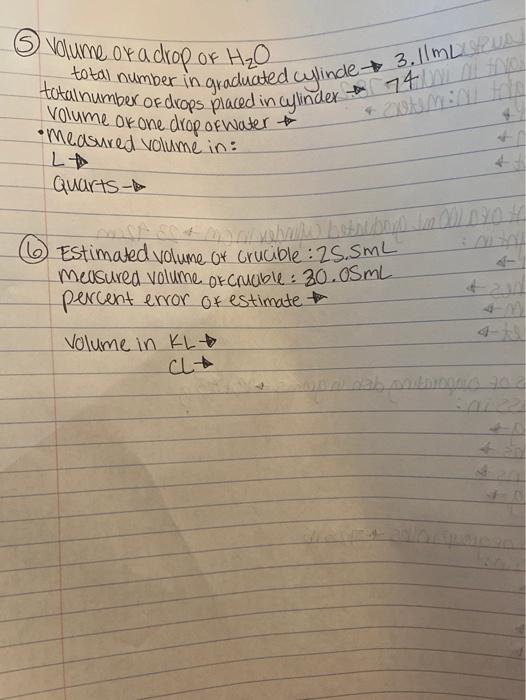 ⑤ Volume of a drop of H₂O
total number in graduated cylinde → 3.11mL
total number of drops placed in cylinder → 74
Volume of one drop of water →
• measured volume in:
L →
Quarts →
⑥ Estimated volume of crucible : 25.5mL
measured volume of crucible : 30.05mL
percent error of estimate →
Volume in KL →
CL →